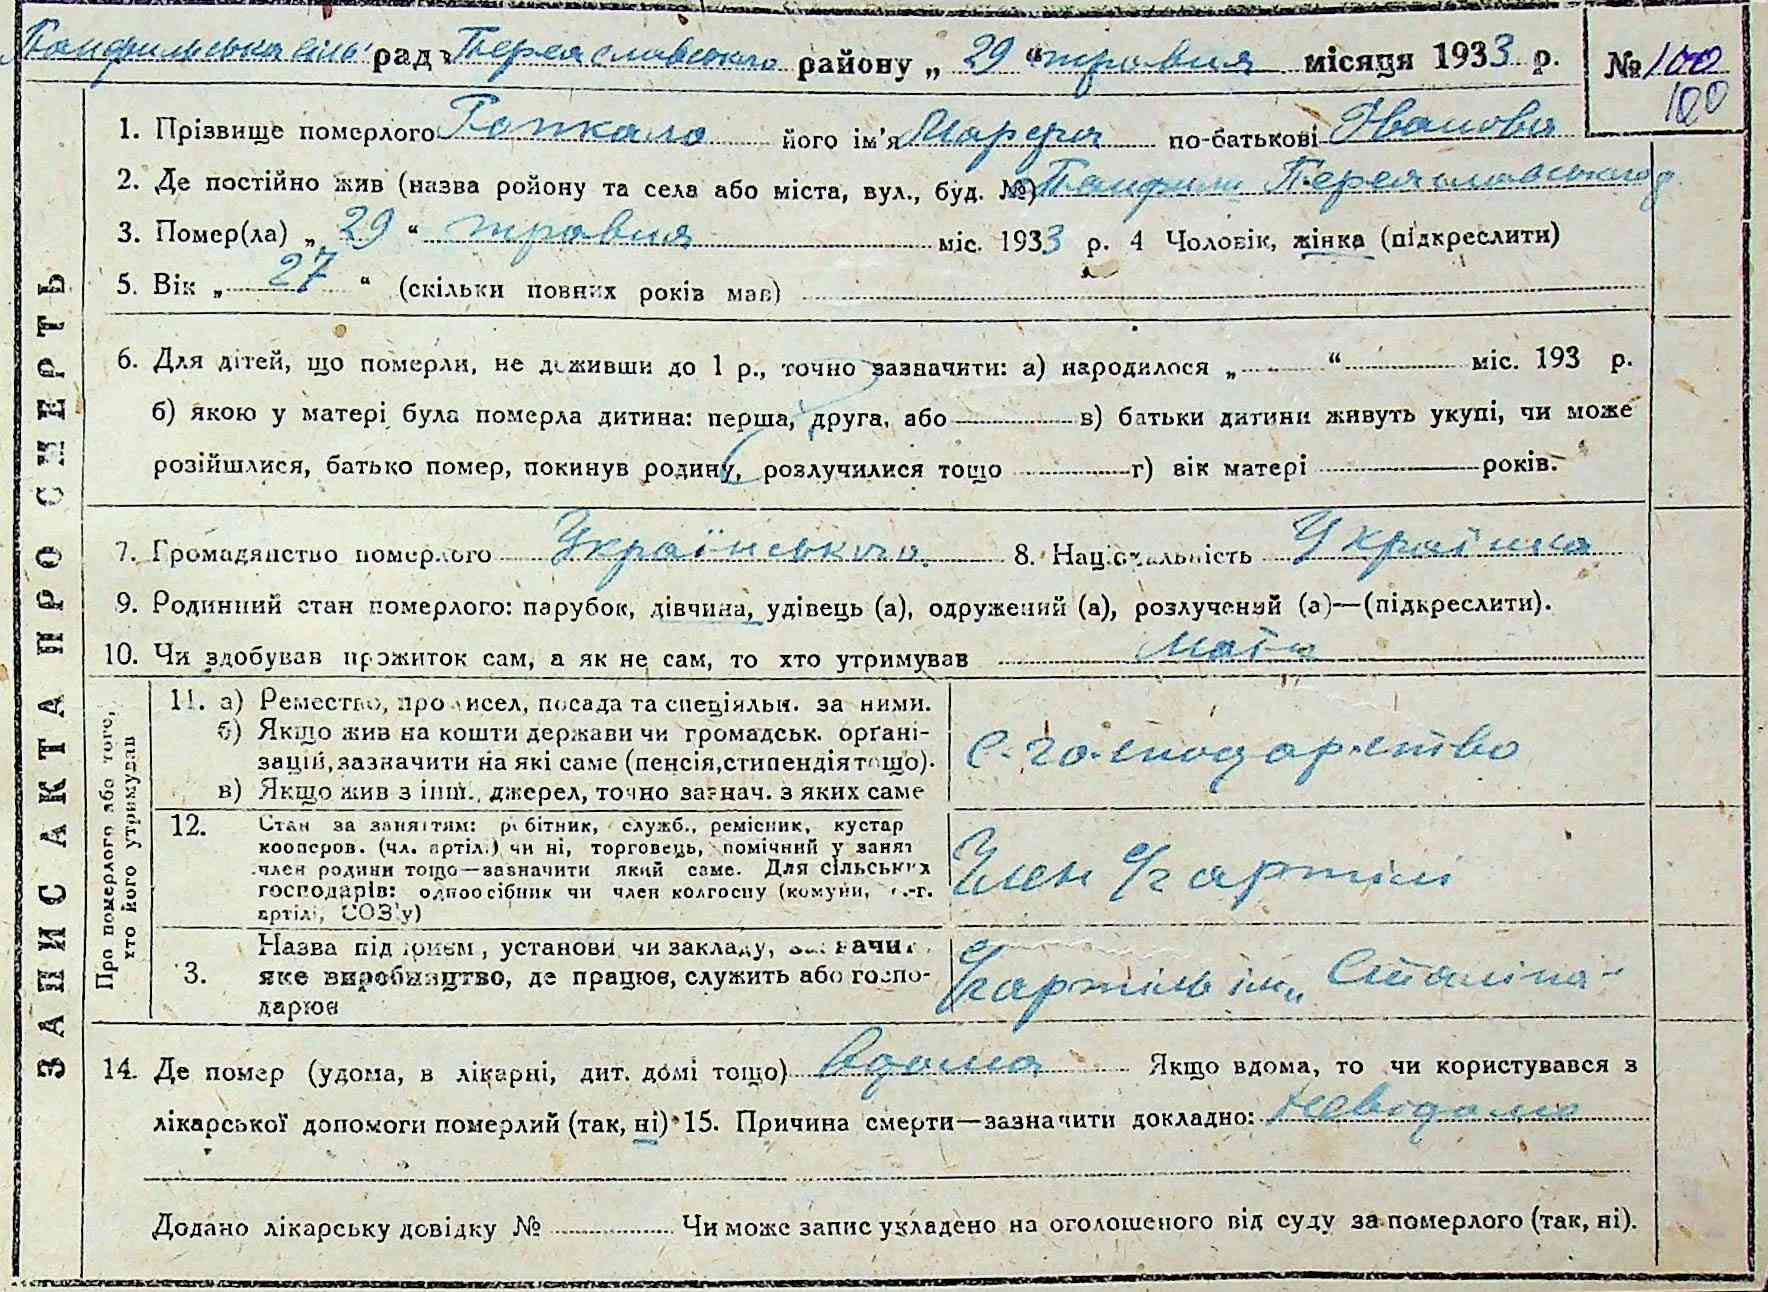 Панфильська сіль рада Переяславського району „ 29 “ травня місяця 1933 р. № 100
100
1. Прізвище померлого Гопкало його ім'я Марфа по-батькові Іванова
2. Де постійно жив (назва ройону та села або міста, вул., буд. №) Панфили Переяславського р
3. Помер(ла) „ 29 “ травня міс. 1933 р. 4 Чоловік, жінка (підкреслити)
5. Вік „ 27 “ (скільки повних років мав)
6. Для дітей, що померли, не доживши до 1 р., точно зазначити: а) народилося „ “ міс. 193 р.
б) якою у матері була померла дитина: перша, друга, або в) батьки дитини живуть укупі, чи може
розійшлися, батько помер, покинув родину, розлучилися тощо г) вік матері років.
7. Громадянство померлого Українського 8. Національність Українка
9. Родинний стан померлого: парубок, дівчина, удівець (а), одружений (а), розлучений (а)—(підкреслити).
10. Чи здобував прожиток сам, а як не сам, то хто утримував Мати
ЗАПИС АКТА ПРО СМЕРТЬ
Про померлого або того,
хто його утримував
11. а) Ремество, промисел, посада та спеціяльн. за ними.
б) Якщо жив на кошти держави чи громадськ. орґані-
зацій, зазначити на які саме (пенсія, стипендія тощо).
в) Якщо жив з інш. джерел, точно зазнач. з яких саме
С-господарство
12. Стан за заняттям: робітник, служб., ремісник, кустар
кооперов. (чл. артілі) чи ні, торговець, помічний у занят
член родини тощо—зазначити який саме. Для сільських
господарів: одноосібник чи член колгоспу (комуни, с.-г.
артілі, СОЗ'у)
Член с/г артілі
Назва підприєм, установи чи закладу, зазначит
13. яке виробництво, де працює, служить або госпо-
дарює
с/г артіль ім „ Сталіна
14. Де помер (удома, в лікарні, дит. домі тощо) вдома Якщо вдома, то чи користувався з
лікарської допомоги померлий (так, ні) 15. Причина смерти—зазначити докладно: Неводомо
Додано лікарську довідку № Чи може запис укладено на оголошеного від суду за померлого (так, ні).